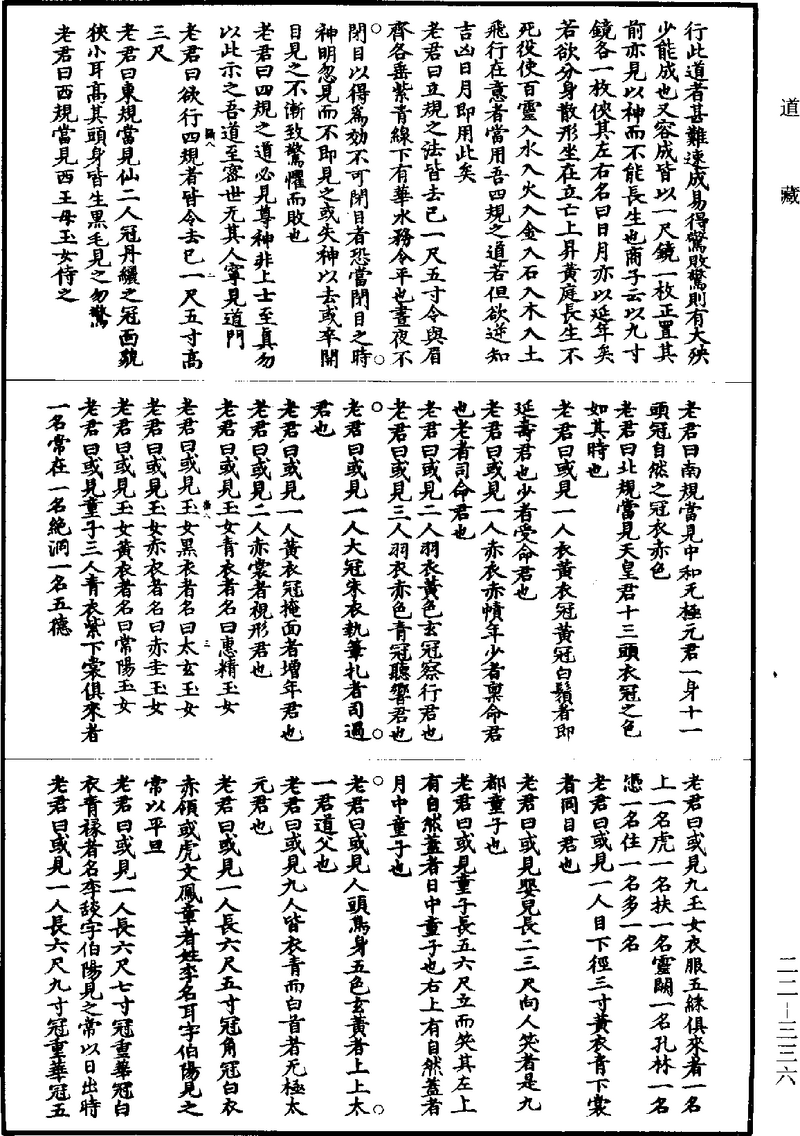 道藏
二二－三三六
行此道者甚難速成易得驚敗驚則有大殃
少能成也又容成皆以一尺鏡一枚正置其
前亦見以神而不能長生也商子云以九寸
鏡各一枚俠其左右名曰日月亦以延年矣
若欲分身散形坐在立亡上昇黃庭長生不
死役使百靈入水入火入金入石入木入土
飛行在意者當用吾四規之道若但欲逆知
吉凶日月即用此矣
老君曰立規之法皆去己一尺五寸令與眉
齊各垂紫青線下有華水務令平也晝夜不
閉目以得爲効不可閉目者恐當閉目之時
神明忽見而不即見之或失神以去或卒開
目見之不漸致驚懼而敗也
老君曰四規之道必見尊神非上士至真勿
以此示之吾道至密世无其人寧見道門
老君曰欲行四規者皆令去己一尺五寸高
三尺
老君曰東規當見仙二人冠丹纙之冠面貌
狹小耳高其頭身皆生黑毛見之勿驚
老君曰西規當見西王母玉女侍之
老君曰南規當見中和无極元君一身十一
頭冠自然之冠衣赤色
老君曰北規當見天皇君十三頭衣冠之色
如其時也
老君曰或見一人衣黃衣冠黃冠白鬚者即
延壽君也少者受命君也
老君曰或見一人赤衣赤幘年少者稟命君
也老者司命君也
老君曰或見二人羽衣黃色玄冠察行君也
老君曰或見三人羽衣赤色青冠聽響君也
老君曰或見一人大冠朱衣執筆札者司過
君也
老君曰或見一人黃衣冠掩面者增年君也
老君曰或見二人赤裳者視形君也
老君曰或見玉女青衣者名曰惠精玉女
老君曰或見玉女黑衣者名曰太玄玉女
老君曰或見玉女赤衣者名曰赤圭玉女
老君曰或見玉女黃衣者名曰常陽玉女
老君曰或見童子三人青衣紫下裳俱來者
一名常在一名絶洞一名五德
老君曰或見九玉女衣服五綵俱來者一名
上一名虎一名扶一名靈闢一名孔林一名
憑一名住一名多一名
老君曰或見一人目下徑三寸黃衣青下裳
者同目君也
老君曰或見嬰兒長二三尺向人笑者是九
都童子也
老君曰或見童子長五六尺立而笑其左上
有自然蓋者日中童子也右上有自然蓋者
月中童子也
老君曰或見人頭鳥身五色玄黃者上上太
一君道父也
老君曰或見九人皆衣青而白首者无極太
元君也
老君曰或見一人長六尺五寸冠角冠白衣
赤領或虎文鳳章者姓李名耳字伯陽見之
常以平旦
老君曰或見一人長六尺七寸冠重華冠白
衣青緣者名李談字伯陽見之常以日出時
老君曰或見一人長六尺九寸冠重華冠五